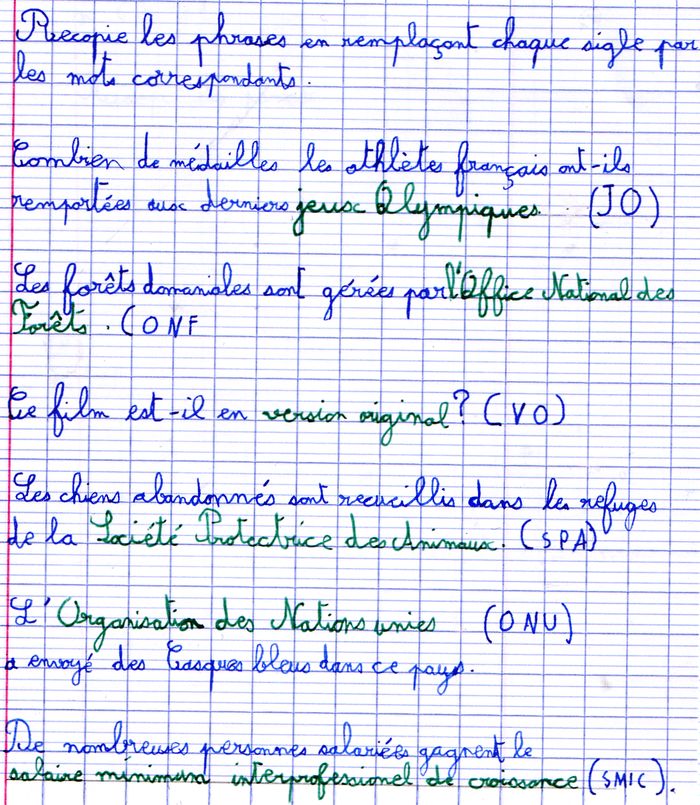 Recopie les phrases en remplaçant chaque sigle par
les mots correspondants.
Combien de médailles les athlètes français ont-ils
remportées aux derniers jeux Olympiques. (JO)
Les forêts domaniales sont gérées par l'Office National des
Forêts. (ONF
Ce film est-il en version original? (VO)
Les chiens abandonnés sont recueillis dans les refuges
de la Société Protectrice des Animaux. (SPA)
L'Organisation des Nations unies (ONU)
a envoyé des Casques bleus dans ce pays.
De nombreuses personnes salariées gagnent le
salaire minimum interprofessionel de croissance (SMIC).